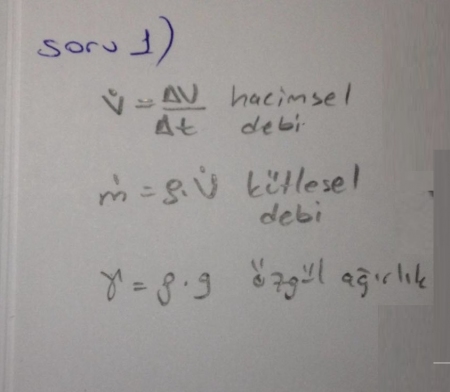 soru 1)
V̇ = ΔV/Δt hacimsel debi
ṁ = ρ.V̇ kütlesel debi
γ = ρ.g özgül ağırlık